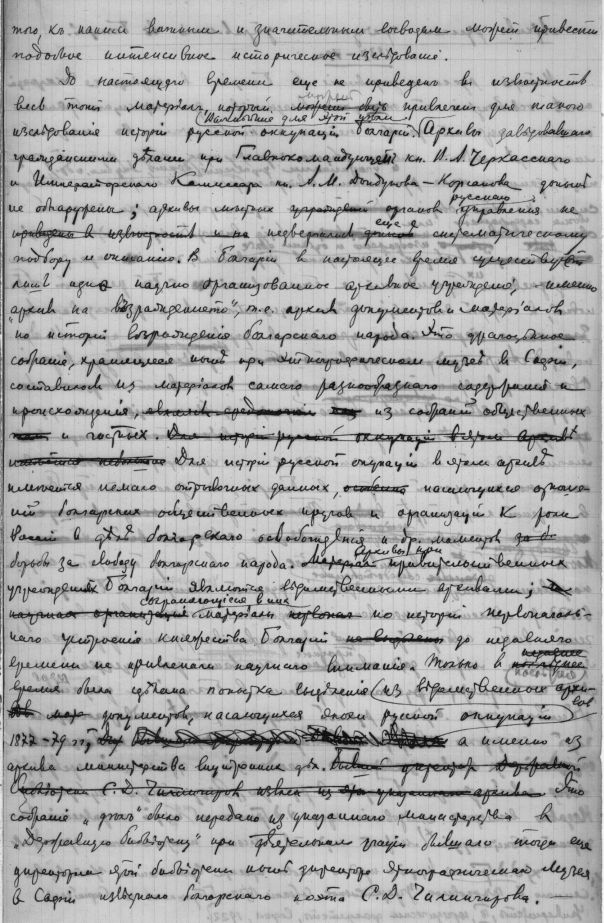 того, къ какимъ важнымъ и значительнымъ выводамъ можетъ привести
подобное интенсивное историческое изслѣдованіе.
До настоящаго времени еще не приведенъ въ извѣстность
весь тотъ матеріалъ, который можетъ быть привлеченъ для полнаго
изслѣдованія исторіи русской оккупаціи Болгаріи. Архивы завѣдывавшаго
гражданскими дѣлами при Главнокомандующемъ кн. В. А. Черкасскаго
и Императорскаго Комиссара кн. А. М. Дондукова-Корсакова донынѣ
не обнаружены; архивы мѣстныхъ органовъ русскаго управленія не
подвергались еще систематическому
подбору и описанію. Въ Болгаріи въ настоящее время существуетъ
лишь одно научно организованное архивное учрежденіе, именно
"архив на възраждането", т.е. архивъ документовъ и матеріаловъ
по исторіи возрожденія болгарскаго народа. Это драгоцѣнное
собраніе, хранящееся нынѣ при этнографическомъ музеѣ въ Софіи,
составилось изъ матеріаловъ самаго разнообразнаго содержанія и
происхожденія, изъ собраній общественныхъ
и частныхъ. Для исторіи русской оккупаціи въ этомъ архивѣ
имѣется немало отрывочныхъ данныхъ, касающихся отноше-
ній болгарскихъ общественныхъ круговъ и организацій къ роли
Россіи въ дѣлѣ болгарскаго освобожденія и др. моментовъ
борьбы за свободу болгарскаго народа. Архивы при правительственныхъ
учрежденіяхъ Болгаріи являются вѣдомственными архивами;
сохраняющіеся въ нихъ матеріалы по исторіи первоначаль-
наго устроенія княжества Болгаріи до недавняго
времени не привлекали научнаго вниманія. Только въ
время была сдѣлана попытка выдѣленія изъ вѣдомственныхъ архи-
вовъ документовъ, касающихся эпохи русской оккупаціи
1877-79 гг., а именно изъ
архива министерства внутреннихъ дѣлъ. Это
собраніе "дѣлъ" было передано изъ указаннаго министерства въ
"Державную библіотеку" при дѣятельномъ участіи бывшаго тогда еще
директоромъ этой библіотеки нынѣ директора Этнографическаго музея
въ Софіи извѣстнаго болгарскаго поэта С. Д. Чилингирова.